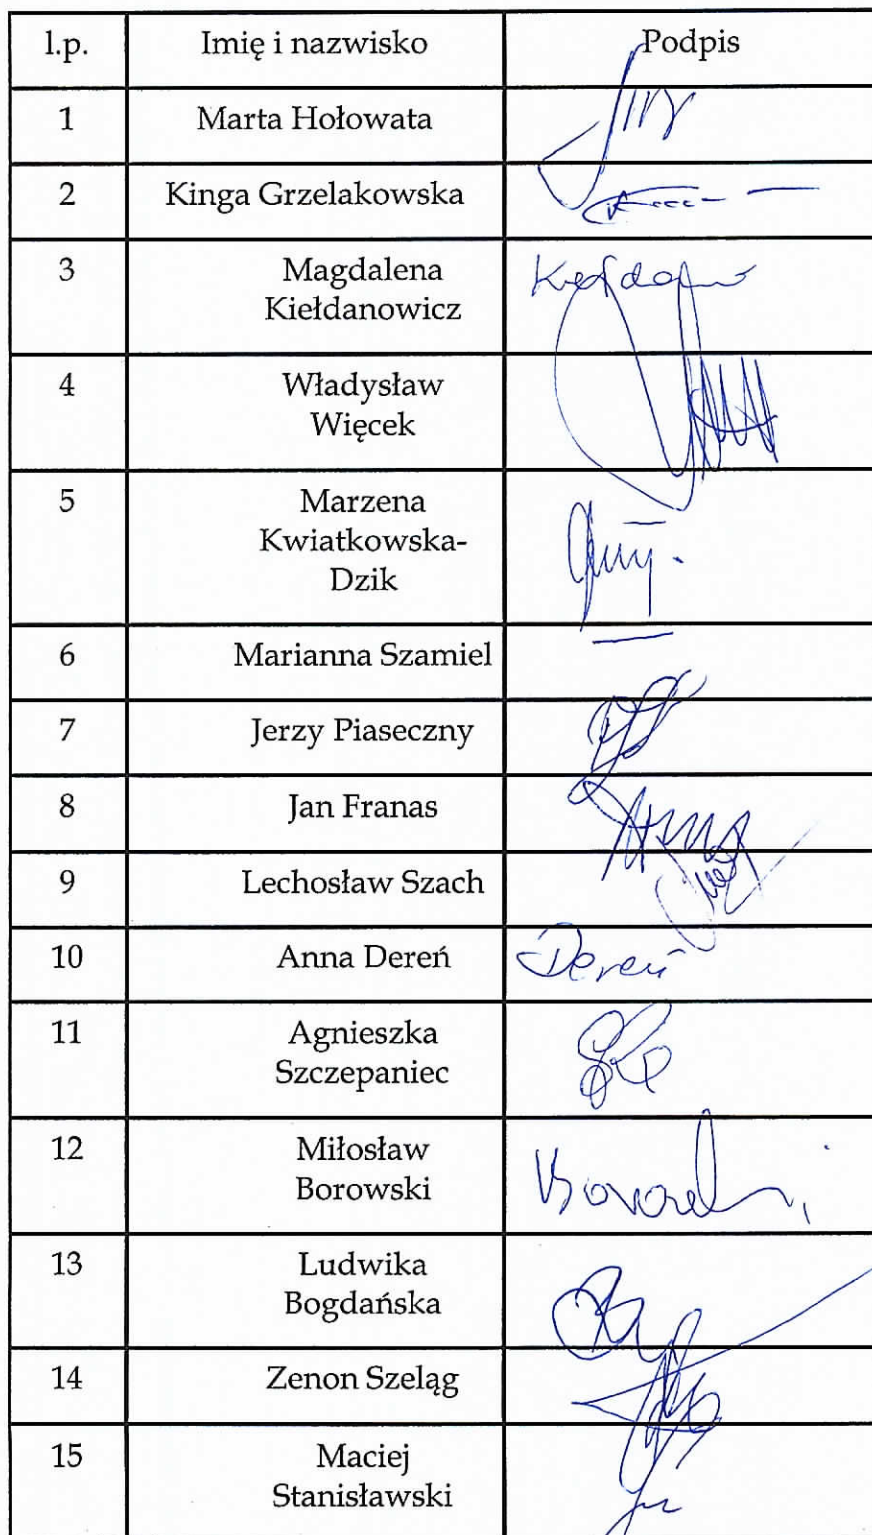 l.p. Imię i nazwisko Podpis
1 Marta Hołowata
2 Kinga Grzelakowska
3 Magdalena
Kiełdanowicz
4 Władysław
Więcek
5 Marzena
Kwiatkowska-
Dzik
6 Marianna Szamiel —
7 Jerzy Piaseczny
8 Jan Franas
9 Lechosław Szach
10 Anna Dereń Dereń
11 Agnieszka
Szczepaniec
12 Miłosław
Borowski
13 Ludwika
Bogdańska
14 Zenon Szeląg
15 Maciej
Stanisławski